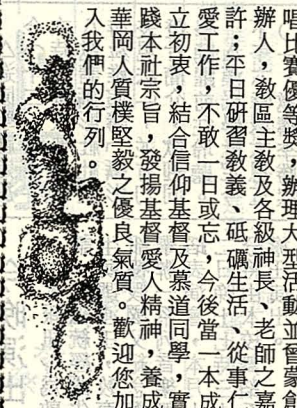 唱比賽優等獎，辦理大型活動並曾蒙創
辦人，教區主教及各級神長、老師之嘉
許；平日研習教義、砥礪生活、從事仁
愛工作，不敢一日或忘，今後當一本成
立初衷，結合信仰基督及慕道同學，實
踐本社宗旨，發揚基督愛人精神，養成
華岡人質樸堅毅之優良氣質。歡迎您加
入我們的行列。